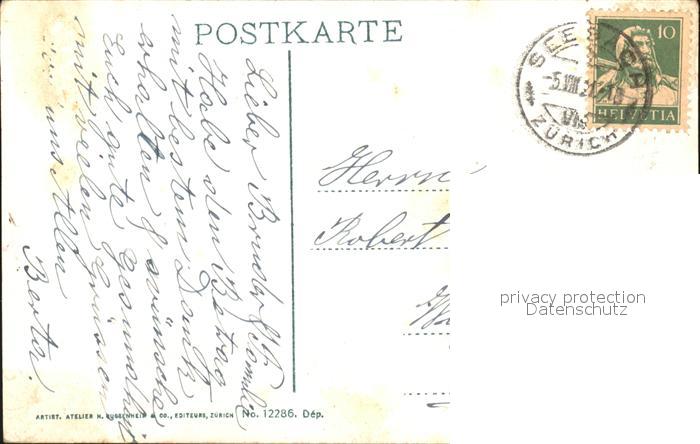 POSTKARTE
Lieber Bruder & Familie
Habe den Betrag
mit bestem Dank
erhalten & wünsche
Euch gute Gesundheit
mit vielen Grüssen
uns Allen
Berta.
SEEBACH
-5.VIII.
ZÜRICH
10
HELVETIA
Herrn
Robert
privacy protection
Datenschutz
ARTIST. ATELIER H. GUGGENHEIM & CO., EDITEURS, ZÜRICH No. 12286. Dép.